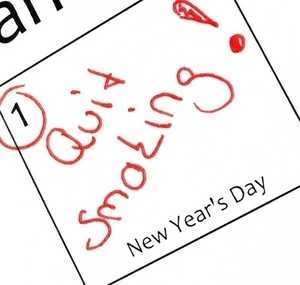 an
1
Quit
Smoking!
New Year's Day